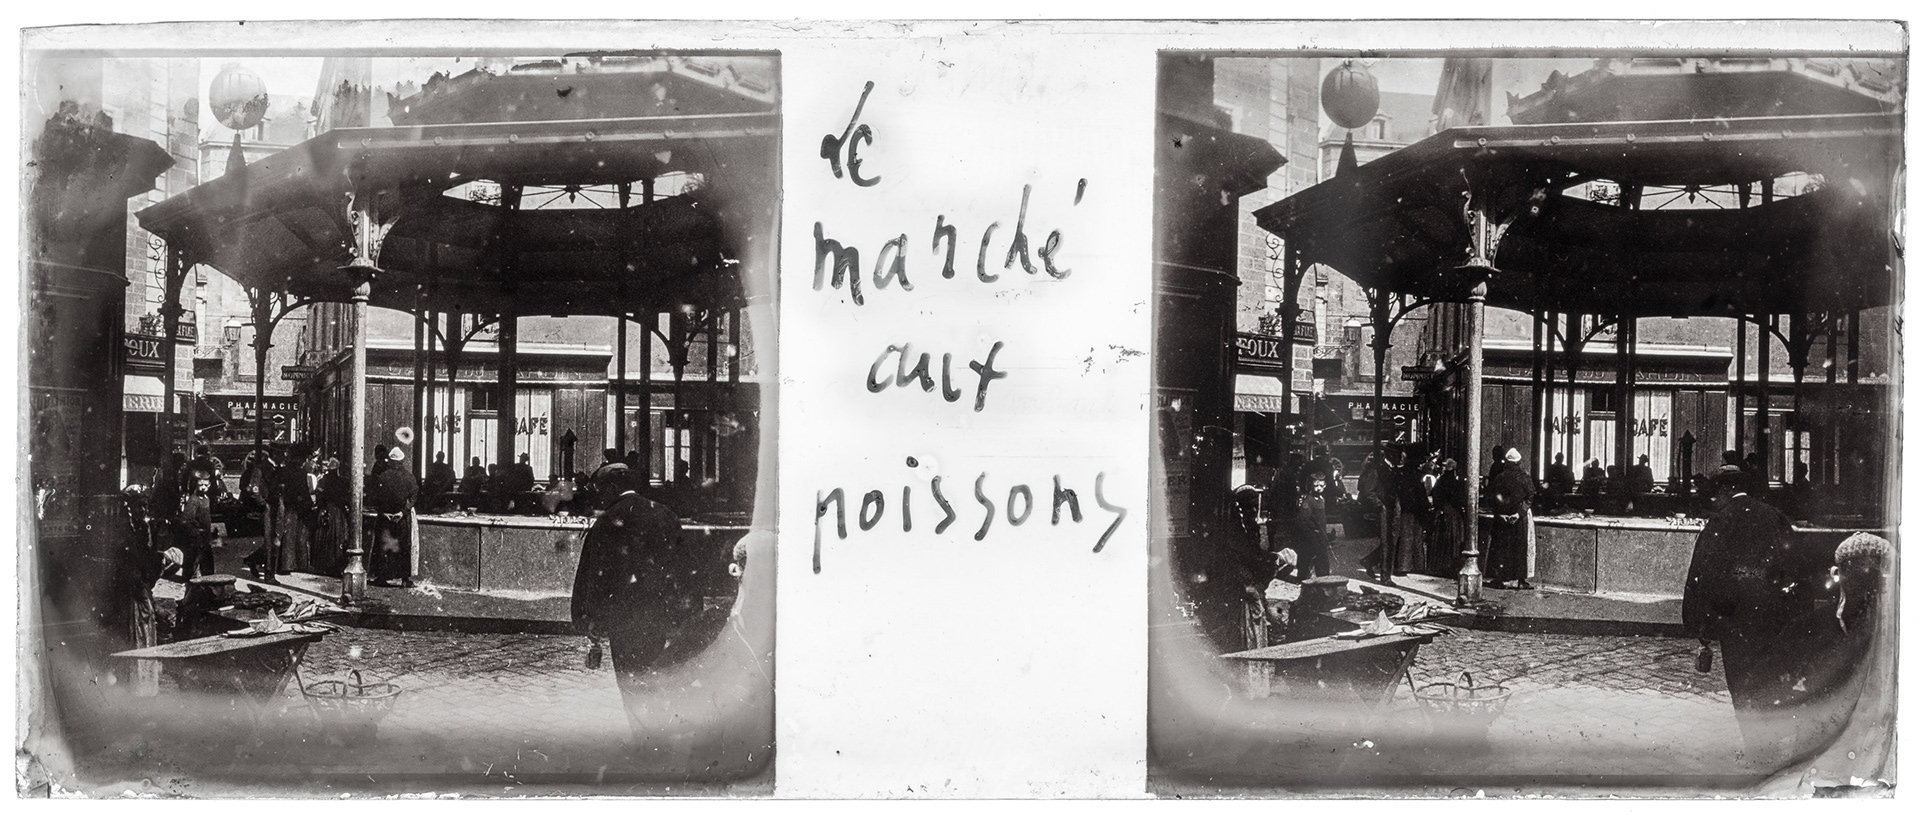 OUX
MERIE
PHARMACIE
CAFÉ
CAFÉ
Le
marché
aux
poissons
FOUX
MERIE
PHARMACIE
CAFÉ
CAFÉ